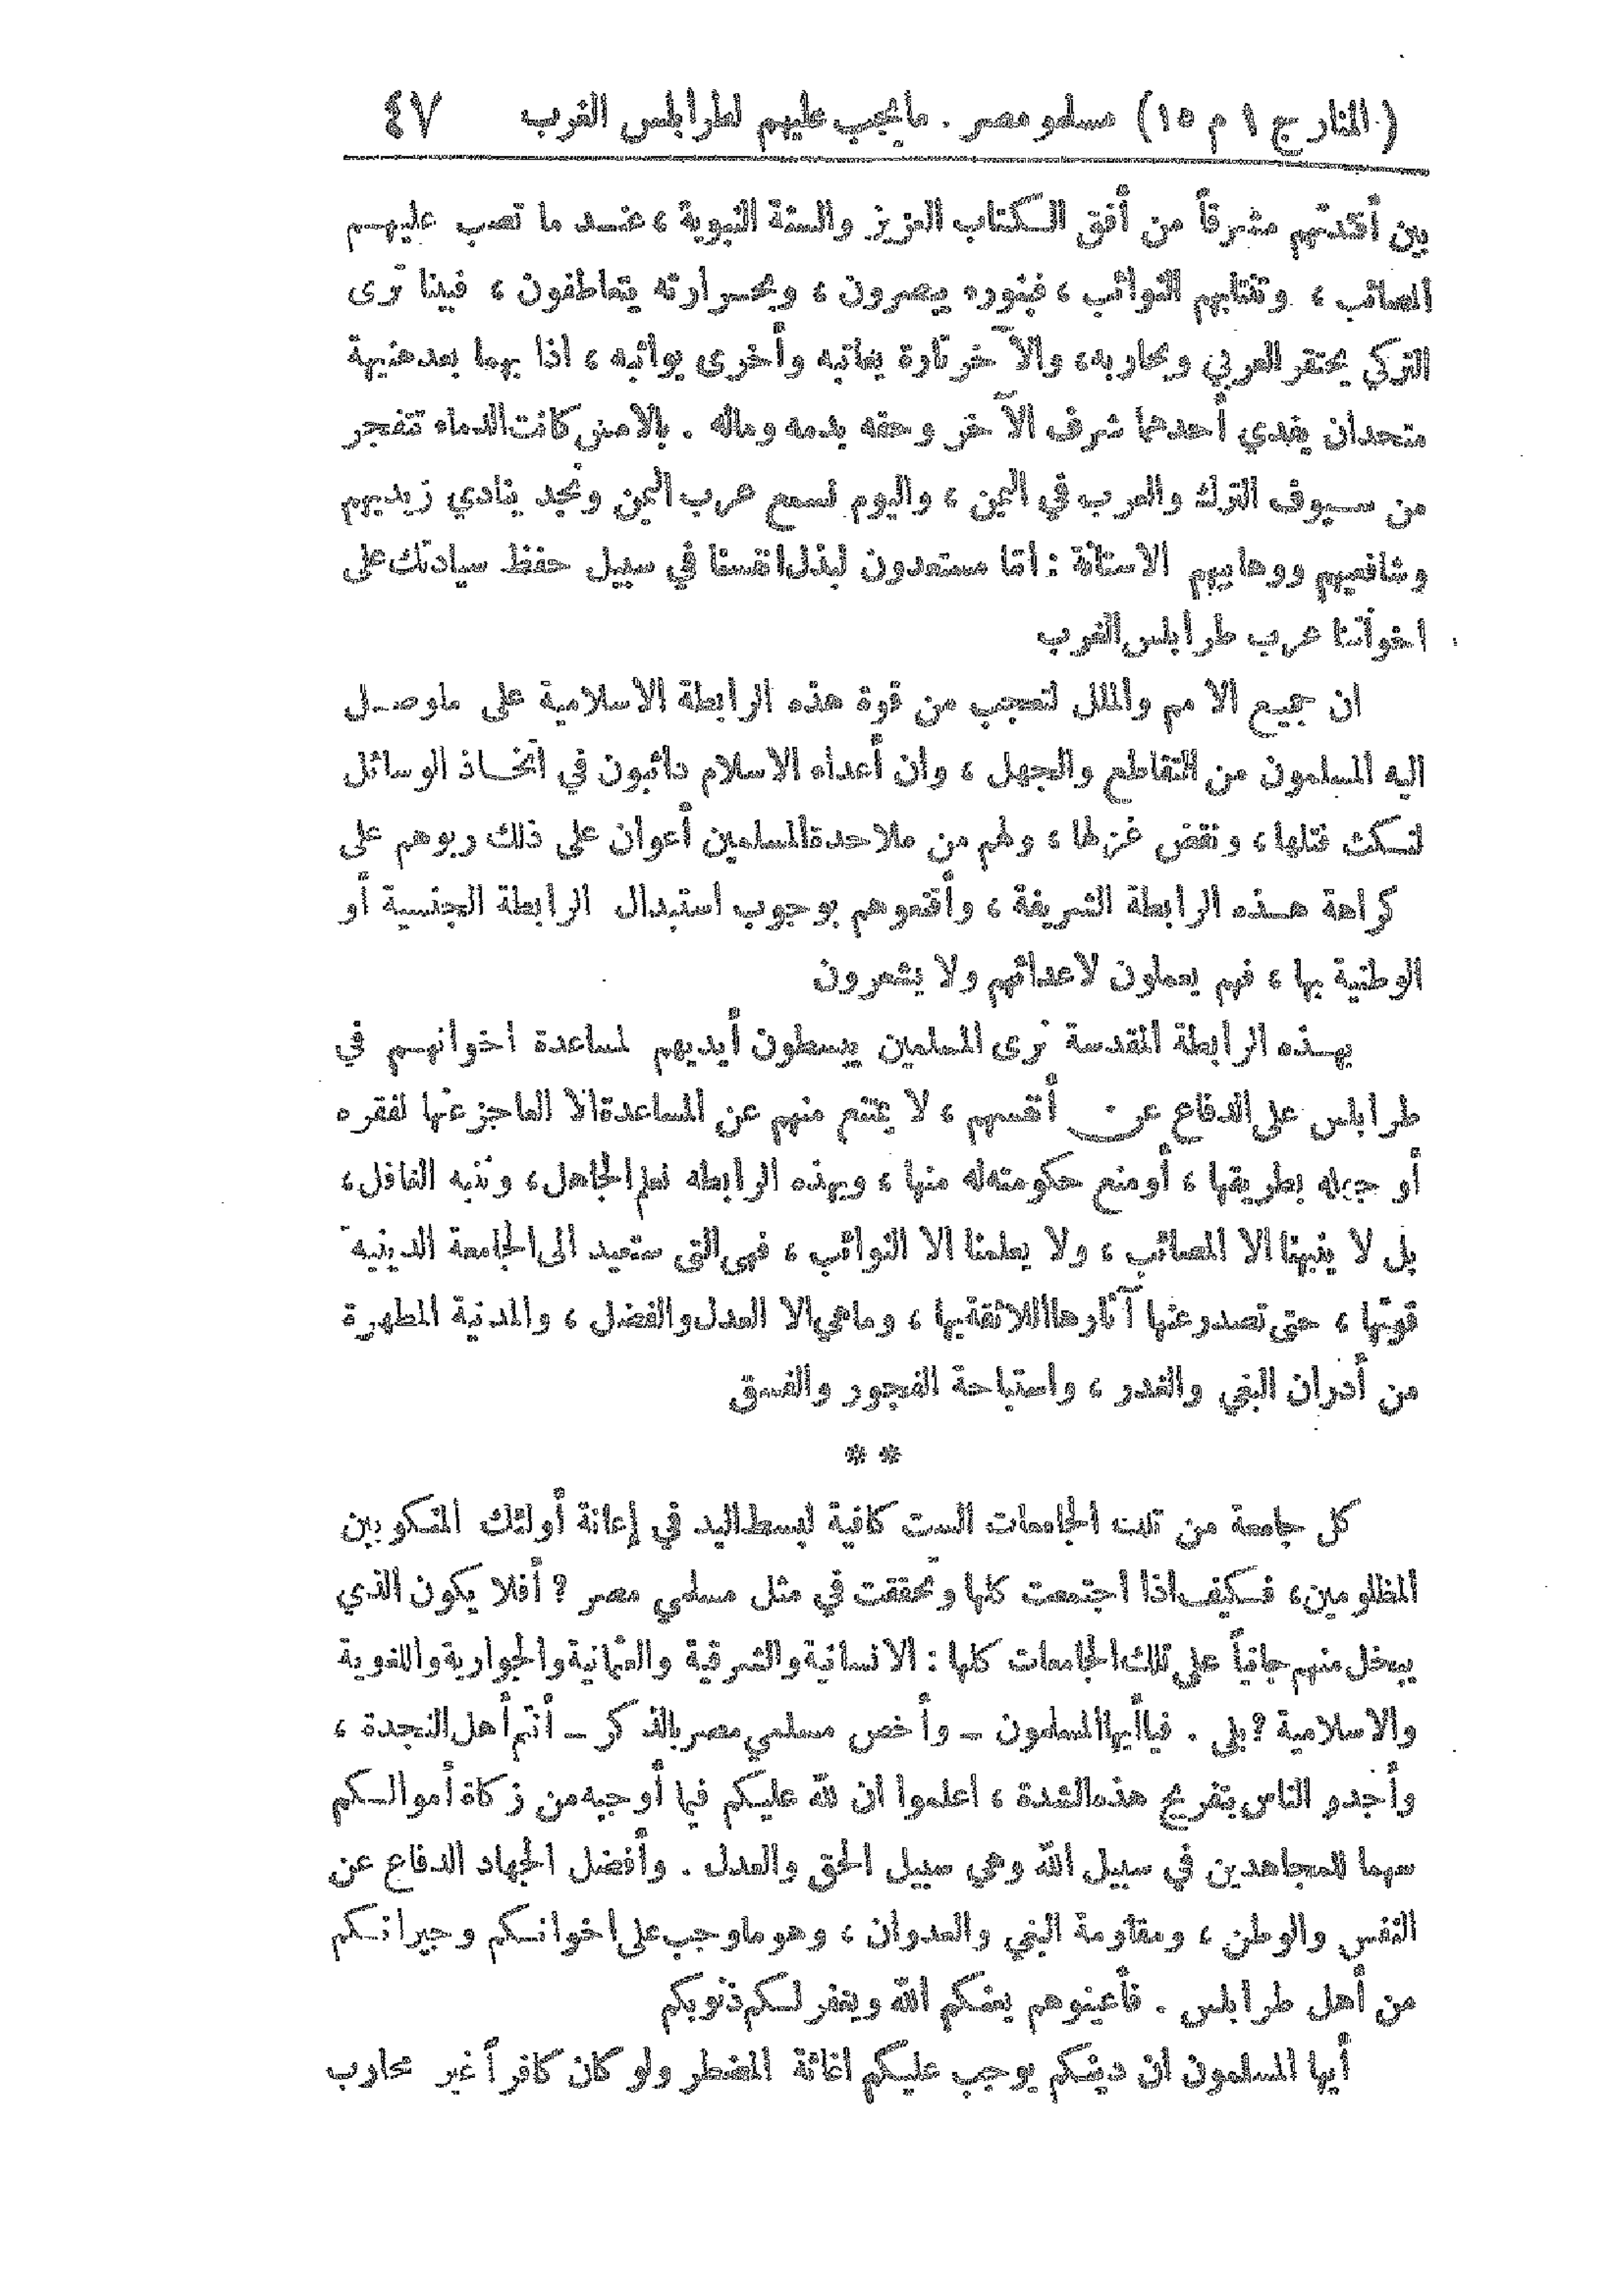 (المنارج ١ م ١٥) مسلمو مصر . ما يجب عليهم لطرابلس الغرب ٤٧
بين أفئدتهم مشرقاً من أفق الكتاب العزيز والسنة النبوية ، عند ما تصب عليهم
المصائب ، وتنتابهم النوائب ، فبنوره يبصرون ، وبحرارته يتعاطفون ، فبينا ترى
التركي يحتقر العربي ويحاربه، والآخر تارة يعاتبه وأخرى يواثبه ، اذا بهما بعد هنيهة
متحدان يفدي أحدهما شرف الآخر وحقه بدمه وماله . بالامس كانت الدماء تتفجر
من سيوف الترك والعرب في اليمن ، واليوم نسمع عرب اليمن ونجد ينادي زيديهم
وشافعيهم ووهابيهم الاستانة : اننا مستعدون لبذل انفسنا في سبيل حفظ سيادتك على
اخواننا عرب طرابلس الغرب
ان جميع الامم والملل لتعجب من قوة هذه الرابطة الاسلامية على ماوصل
اليه المسلمون من التقاطع والجهل ، وان أعداء الاسلام دائبون في اتخاذ الوسائل
لنكث فتلها ، ونقض غزلها ، ولهم من ملاحدة المسلمين أعوان على ذلك ربوهم على
كراهة هذه الرابطة الشريفة ، وأقنعوهم بوجوب استبدال الرابطة الجنسية أو
الوطنية بها ، فهم يعملون لاعدائهم ولا يشعرون
بهذه الرابطة المقدسة نرى المسلمين يبسطون أيديهم لمساعدة اخوانهم في
طرابلس على الدفاع عن أنفسهم ، لا يمتنع منهم عن المساعدة الا العاجز عنها لفقره
أو جهله بطريقها ، أو منع حكومته له منها ، وبهذه الرابطه نعلم الجاهل ، وننبه الغافل ،
بل لا ينبهنا الا المصائب ، ولا يعلمنا الا النوائب ، فهي التي ستعيد الى الجامعة الدينية
قوتها ، حتى تصدر عنها آثارها اللائقة بها ، وما هي الا العدل والفضل ، والمدنية المطهرة
من أدران البغي والغدر ، واستباحة الفجور والفسق
* *
كل جامعة من تلك الجامعات الست كافية لبسط اليد في إعانة أولئك المنكوبين
المظلومين، فكيف اذا اجتمعت كلها وتحققت في مثل مسلمي مصر ? أفلا يكون الذي
يبخل منهم جانياً على تلك الجامعات كلها : الانسانية والشرقية والعثمانية والجوارية واللغوية
والاسلامية ? بلى . فيا أيها المسلمون – وأخص مسلمي مصر بالذكر – أنتم أهل النجدة ،
وأجدر الناس بتفريج هذه الشدة ، اعلموا ان لله عليكم فيما أوجبه من زكاة أموالكم
سهما للمجاهدين في سبيل الله وهي سبيل الحق والعدل . وأفضل الجهاد الدفاع عن
النفس والوطن ، ومقاومة البغي والعدوان ، وهو ما وجب على اخوانكم وجيرانكم
من أهل طرابلس . فأعينوهم يعنكم الله ويغفر لكم ذنوبكم
أيها المسلمون ان دينكم يوجب عليكم اغاثة المضطر ولو كان كافراً غير محارب